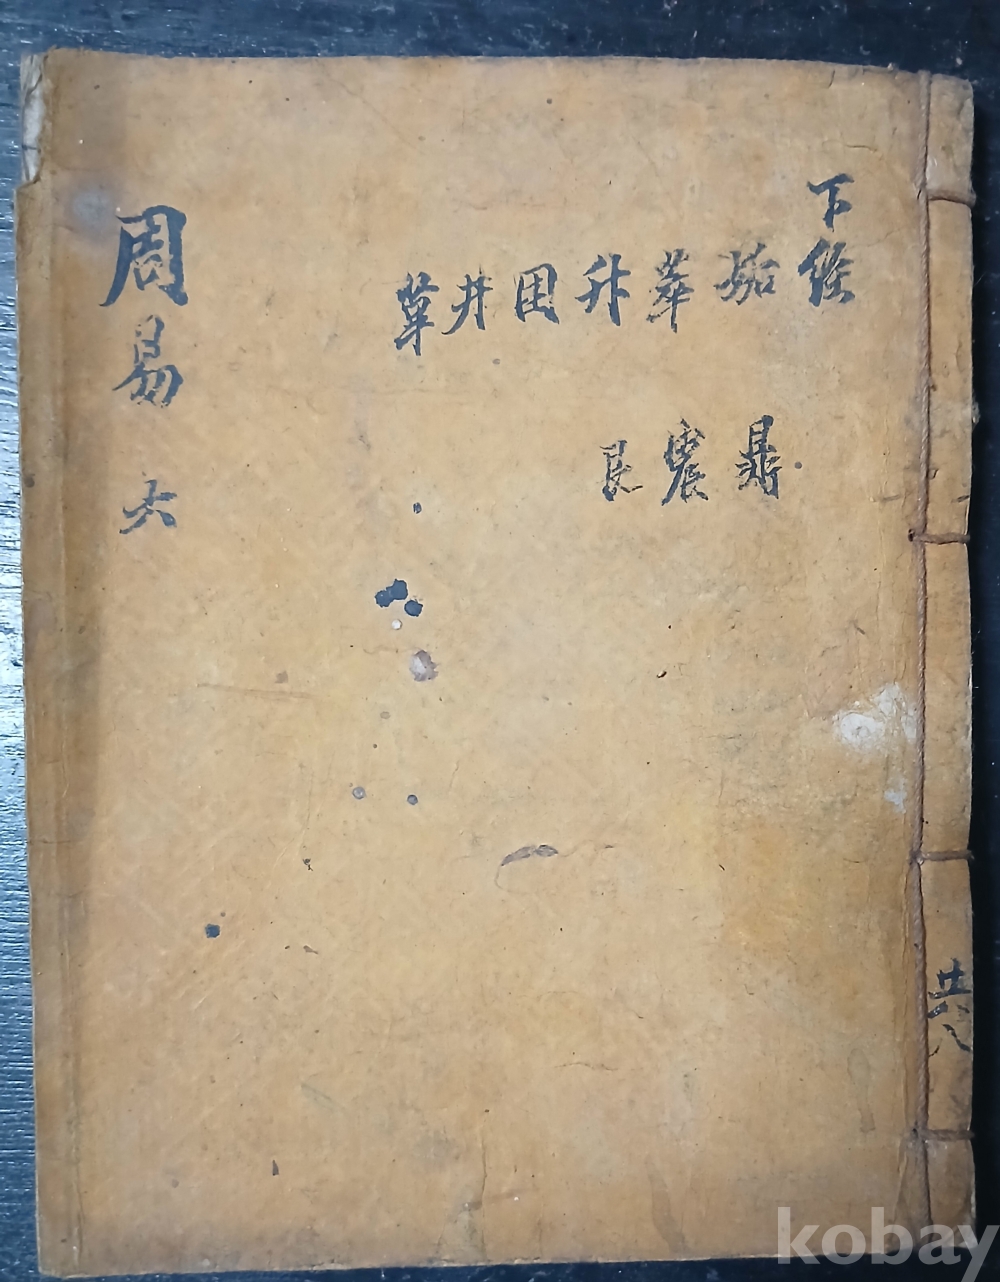 下經
姤 萃 升 困 井 革
鼎 震 艮
周易 六
共八
kobay